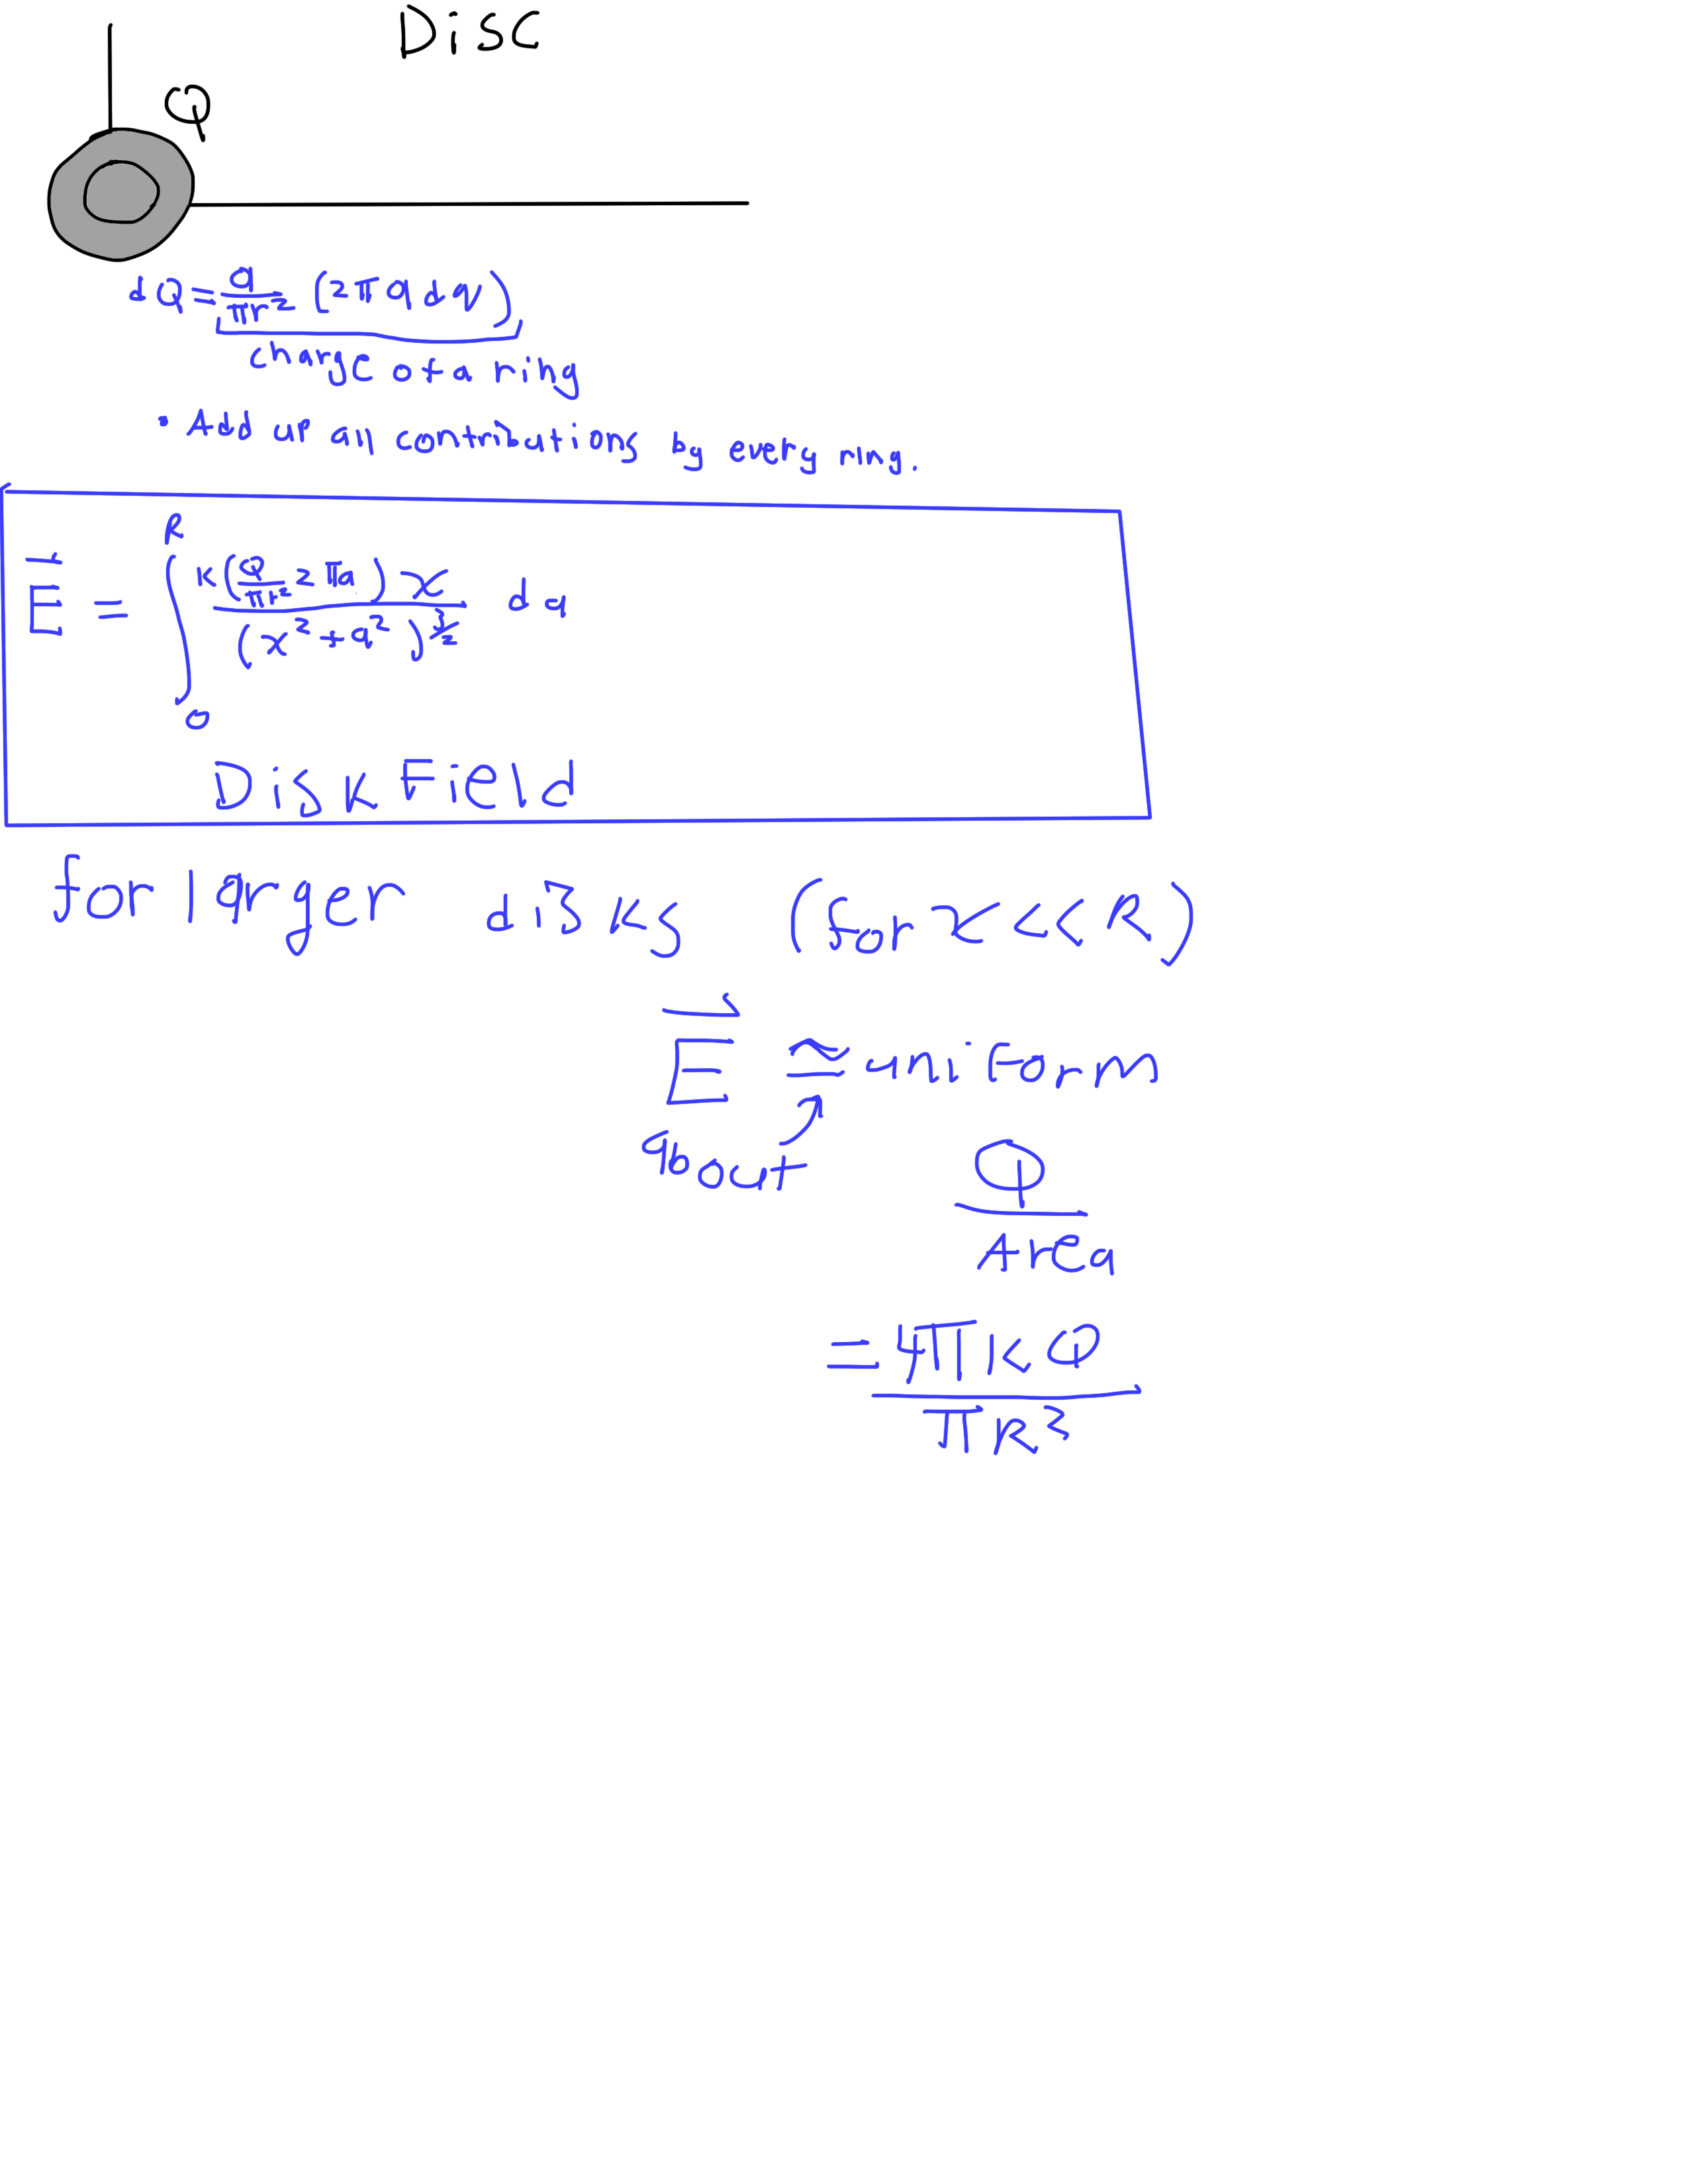 Disc
Q
dQ = Q/πr² (2πada)
charge of a ring
• Add up all contributions by every ring.
E⃗ = ∫₀ᴿ K(Q/πr² 2πa)x / (x² + a²)^(3/2) da
Disk Field
for larger disks (for x <<< R)
E⃗ ≅ uniform
about
Q/Area
= 4πKQ / πR²